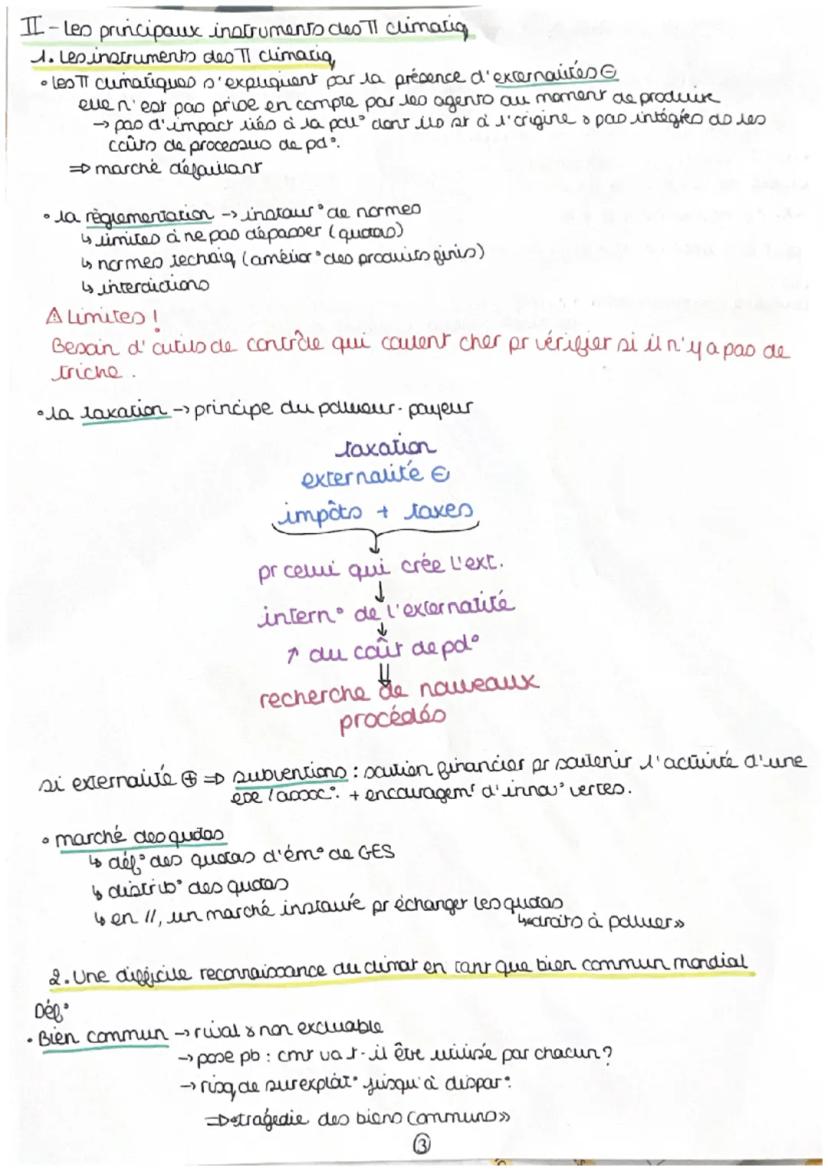 II - Les principaux instruments des Π climatiq
1. Les instruments des Π climatiq
• les Π climatiques s'expliquent par la présence d'externalités ⊖
elle n'est pas prise en compte par les agents au moment de produire
→ pas d'impact liés à la pollu° dont ils st à l'origine & pas intégrés ds les
coûts de processus de pd°.
⇒ marché défaillant
• la règlementation → instaur° de normes
↳ limites à ne pas dépasser (quotas)
↳ normes techniq (amélior° des produits finis)
↳ interdictions
⚠ Limites !
Besoin d'outils de contrôle qui coutent cher pr vérifier si il n'y a pas de
triche.
• la taxation → principe du pollueur-payeur
taxation
externalité ⊖
impôts + taxes
pr celui qui crée l'ext.
↓
intern° de l'externalité
↓
↗ du coût de pd°
⇓
recherche de nouveaux
procédés
si externalité ⊕ ⇒ subventions : soution financier pr soutenir l'activité d'une
ese / assoc°. + encouragemt d'inno° vertes.
• marché des quotas
↳ déf° des quotas d'ém° de GES
↳ distrib° des quotas
↳ en //, un marché instauré pr échanger les quotas
↳ «droits à polluer»
2. Une difficile reconnaissance du climat en tant que bien commun mondial
Déf°
• Bien commun → rival & non excluable
→ pose pb : cmt va t-il être utilisé par chacun ?
→ risq de surexploit° jusqu'à dispar°.
⇒ «tragédie des biens communs»
3